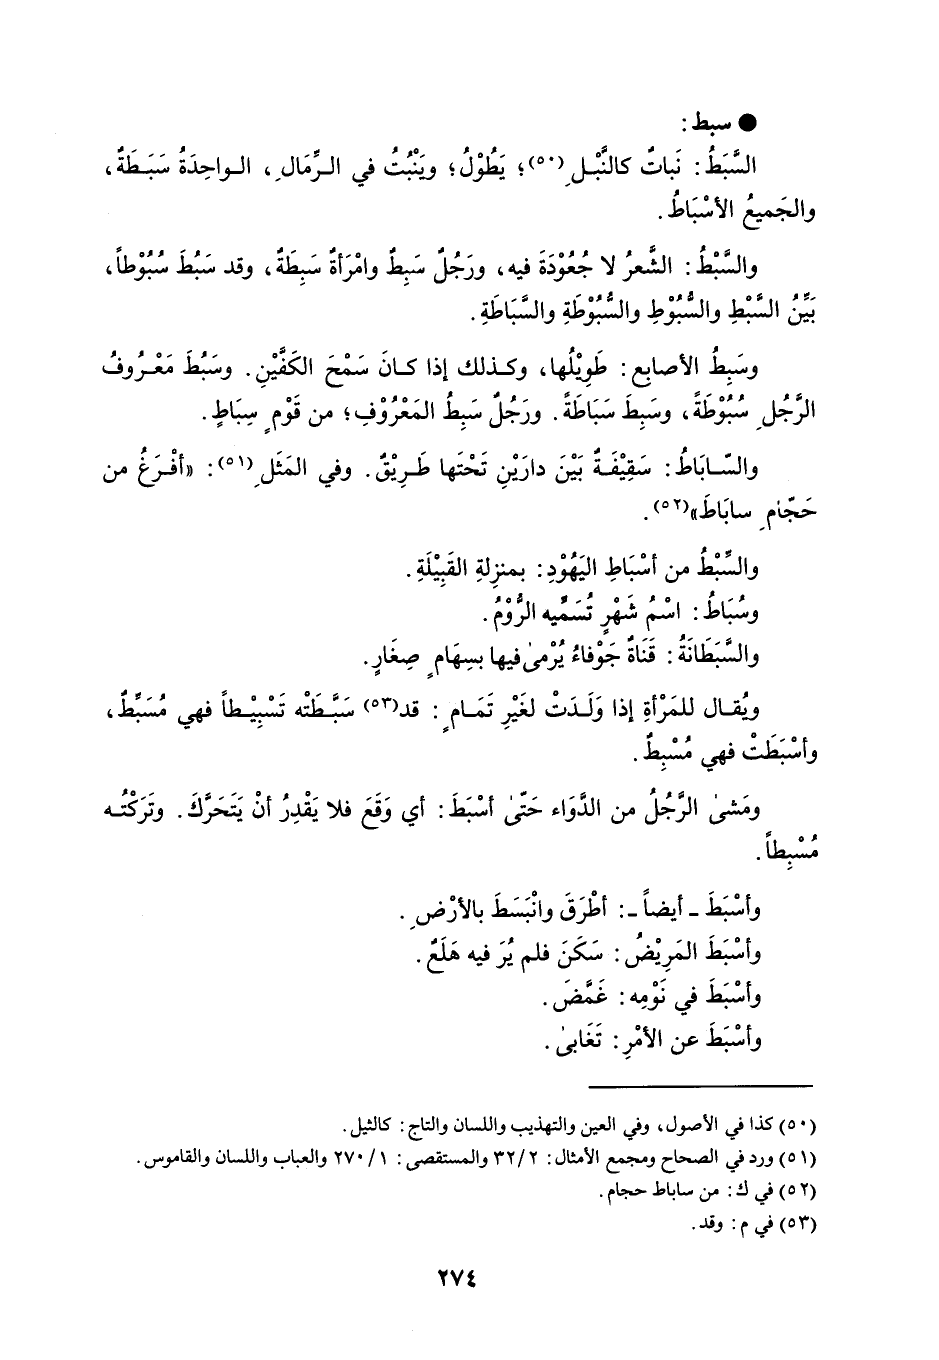 ● سبط:
السَّبَطُ: نَباتٌ كالنَّبْلِ(٥٠)؛ يَطُوْلُ؛ ويَنْبُتُ في الرِّمَالِ، الواحِدَةُ سَبَطَةٌ،
والجَميعُ الأسْبَاطُ.
والسَّبْطُ: الشَّعرُ لا جُعُوْدَةَ فيه، ورَجُلٌ سَبِطٌ وامْرَأةٌ سَبِطَةٌ، وقد سَبُطَ سُبُوْطاً،
بَيِّنُ السَّبْطِ والسُّبُوْطِ والسُّبُوْطَةِ والسَّبَاطَةِ.
وسَبِطُ الأصابِع: طَوِيْلُها، وكذلك إذا كانَ سَمْحَ الكَفَّيْنِ. وسَبُطَ مَعْرُوفُ
الرَّجُلِ سُبُوْطَةً، وسَبِطَ سَبَاطَةً. ورَجُلٌ سَبِطُ المَعْرُوْفِ؛ من قَوْمٍ سِبَاطٍ.
والسّابَاطُ: سَقِيْفَةٌ بَيْنَ دارَيْنِ تَحْتَها طَرِيْقٌ. وفي المَثَلِ(٥١): «أفْرَغُ من
حَجّامِ سابَاطَ»(٥٢).
والسِّبْطُ من أسْبَاطِ اليَهُوْدِ: بمنزِلةِ القَبِيْلَةِ.
وسُبَاطُ: اسْمُ شَهْرٍ تُسَمِّيه الرُّوْمُ.
والسَّبَطَانَةُ: قَنَاةٌ جَوْفاءُ يُرْمىٰ فيها بسِهَامٍ صِغَارٍ.
ويُقال للمَرْأةِ إذا وَلَدَتْ لغَيْرِ تَمَامٍ: قد(٥٣) سَبَّطَتْه تَسْبِيْطاً فهي مُسَبِّطٌ،
وأسْبَطَتْ فهي مُسْبِطٌ.
ومَشىٰ الرَّجُلُ من الدَّوَاء حَتّىٰ أسْبَطَ: أي وَقَعَ فلا يَقْدِرُ أنْ يَتَحَرَّكَ. وتَرَكْتُه
مُسْبِطاً.
وأسْبَطَ - أيضاً -: أطْرَقَ وانْبَسَطَ بالأرْضِ.
وأسْبَطَ المَرِيْضُ: سَكَنَ فلم يُرَ فيه هَلَعٌ.
وأسْبَطَ في نَوْمِه: غَمَّضَ.
وأسْبَطَ عن الأمْرِ: تَغَابىٰ.
(٥٠) كذا في الأصول، وفي العين والتهذيب واللسان والتاج: كالثيل.
(٥١) ورد في الصحاح ومجمع الأمثال: ٣٢/٢ والمستقصى: ٢٧٠/١ والعباب واللسان والقاموس.
(٥٢) في ك: من ساباط حجام.
(٥٣) في م: وقد.
٢٧٤